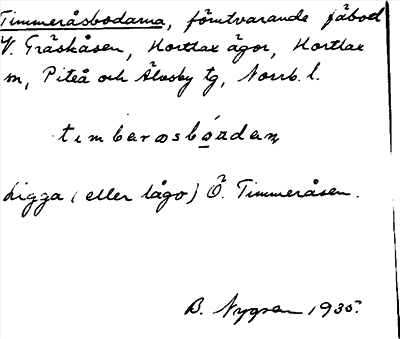 Timmeråsbodarna, förutvarande fäbod
V. Gräskåsen, Hortlax ägor, Hortlax
sn, Piteå och Älvsby tg, Norrb. l.
timbaråsbo̱dan
Ligga (eller lågo) Ö. Timmeråsen.
B. Nygren 1935.